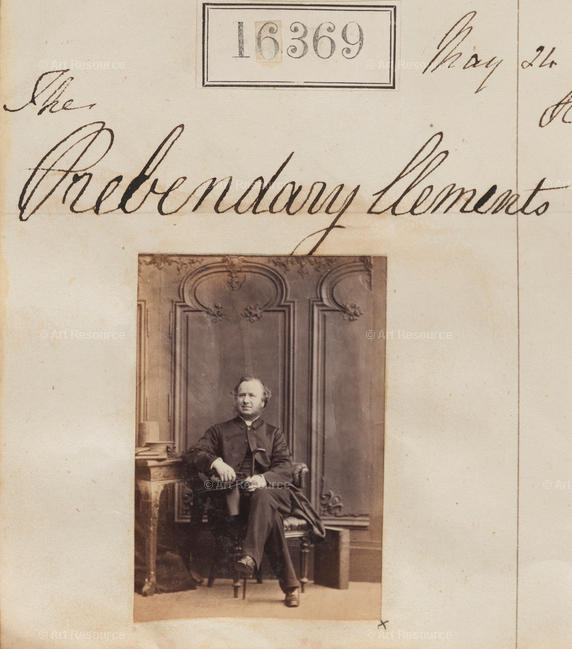 16369
May 24
The
Prebendary Clements
© Art Resource
© Art Resource
© Art Resource
© Art Resource
© Art Resource
© Art Resource
© Art Resource
© Art Resource